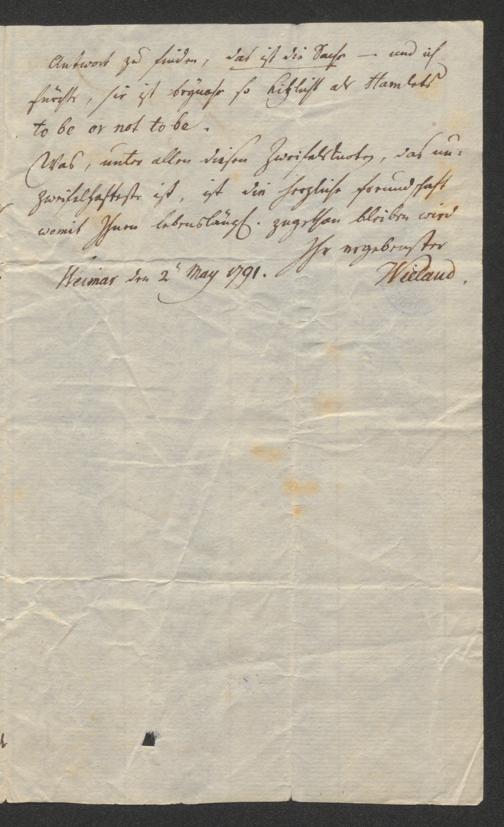 Antwort zu finden, das ist die Sache — und ich
fürchte, sie ist beynahe so kitzlicht als Hamlets
to be or not to be.
Was, unter allen diesen Zweifelsknoten, das un-
zweifelhafteste ist, ist die herzliche Freundschaft
womit Ihnen lebenslängl. zugethan bleiben wird
Ihr ergebenster
Weimar den 2t May 1791. Wieland.